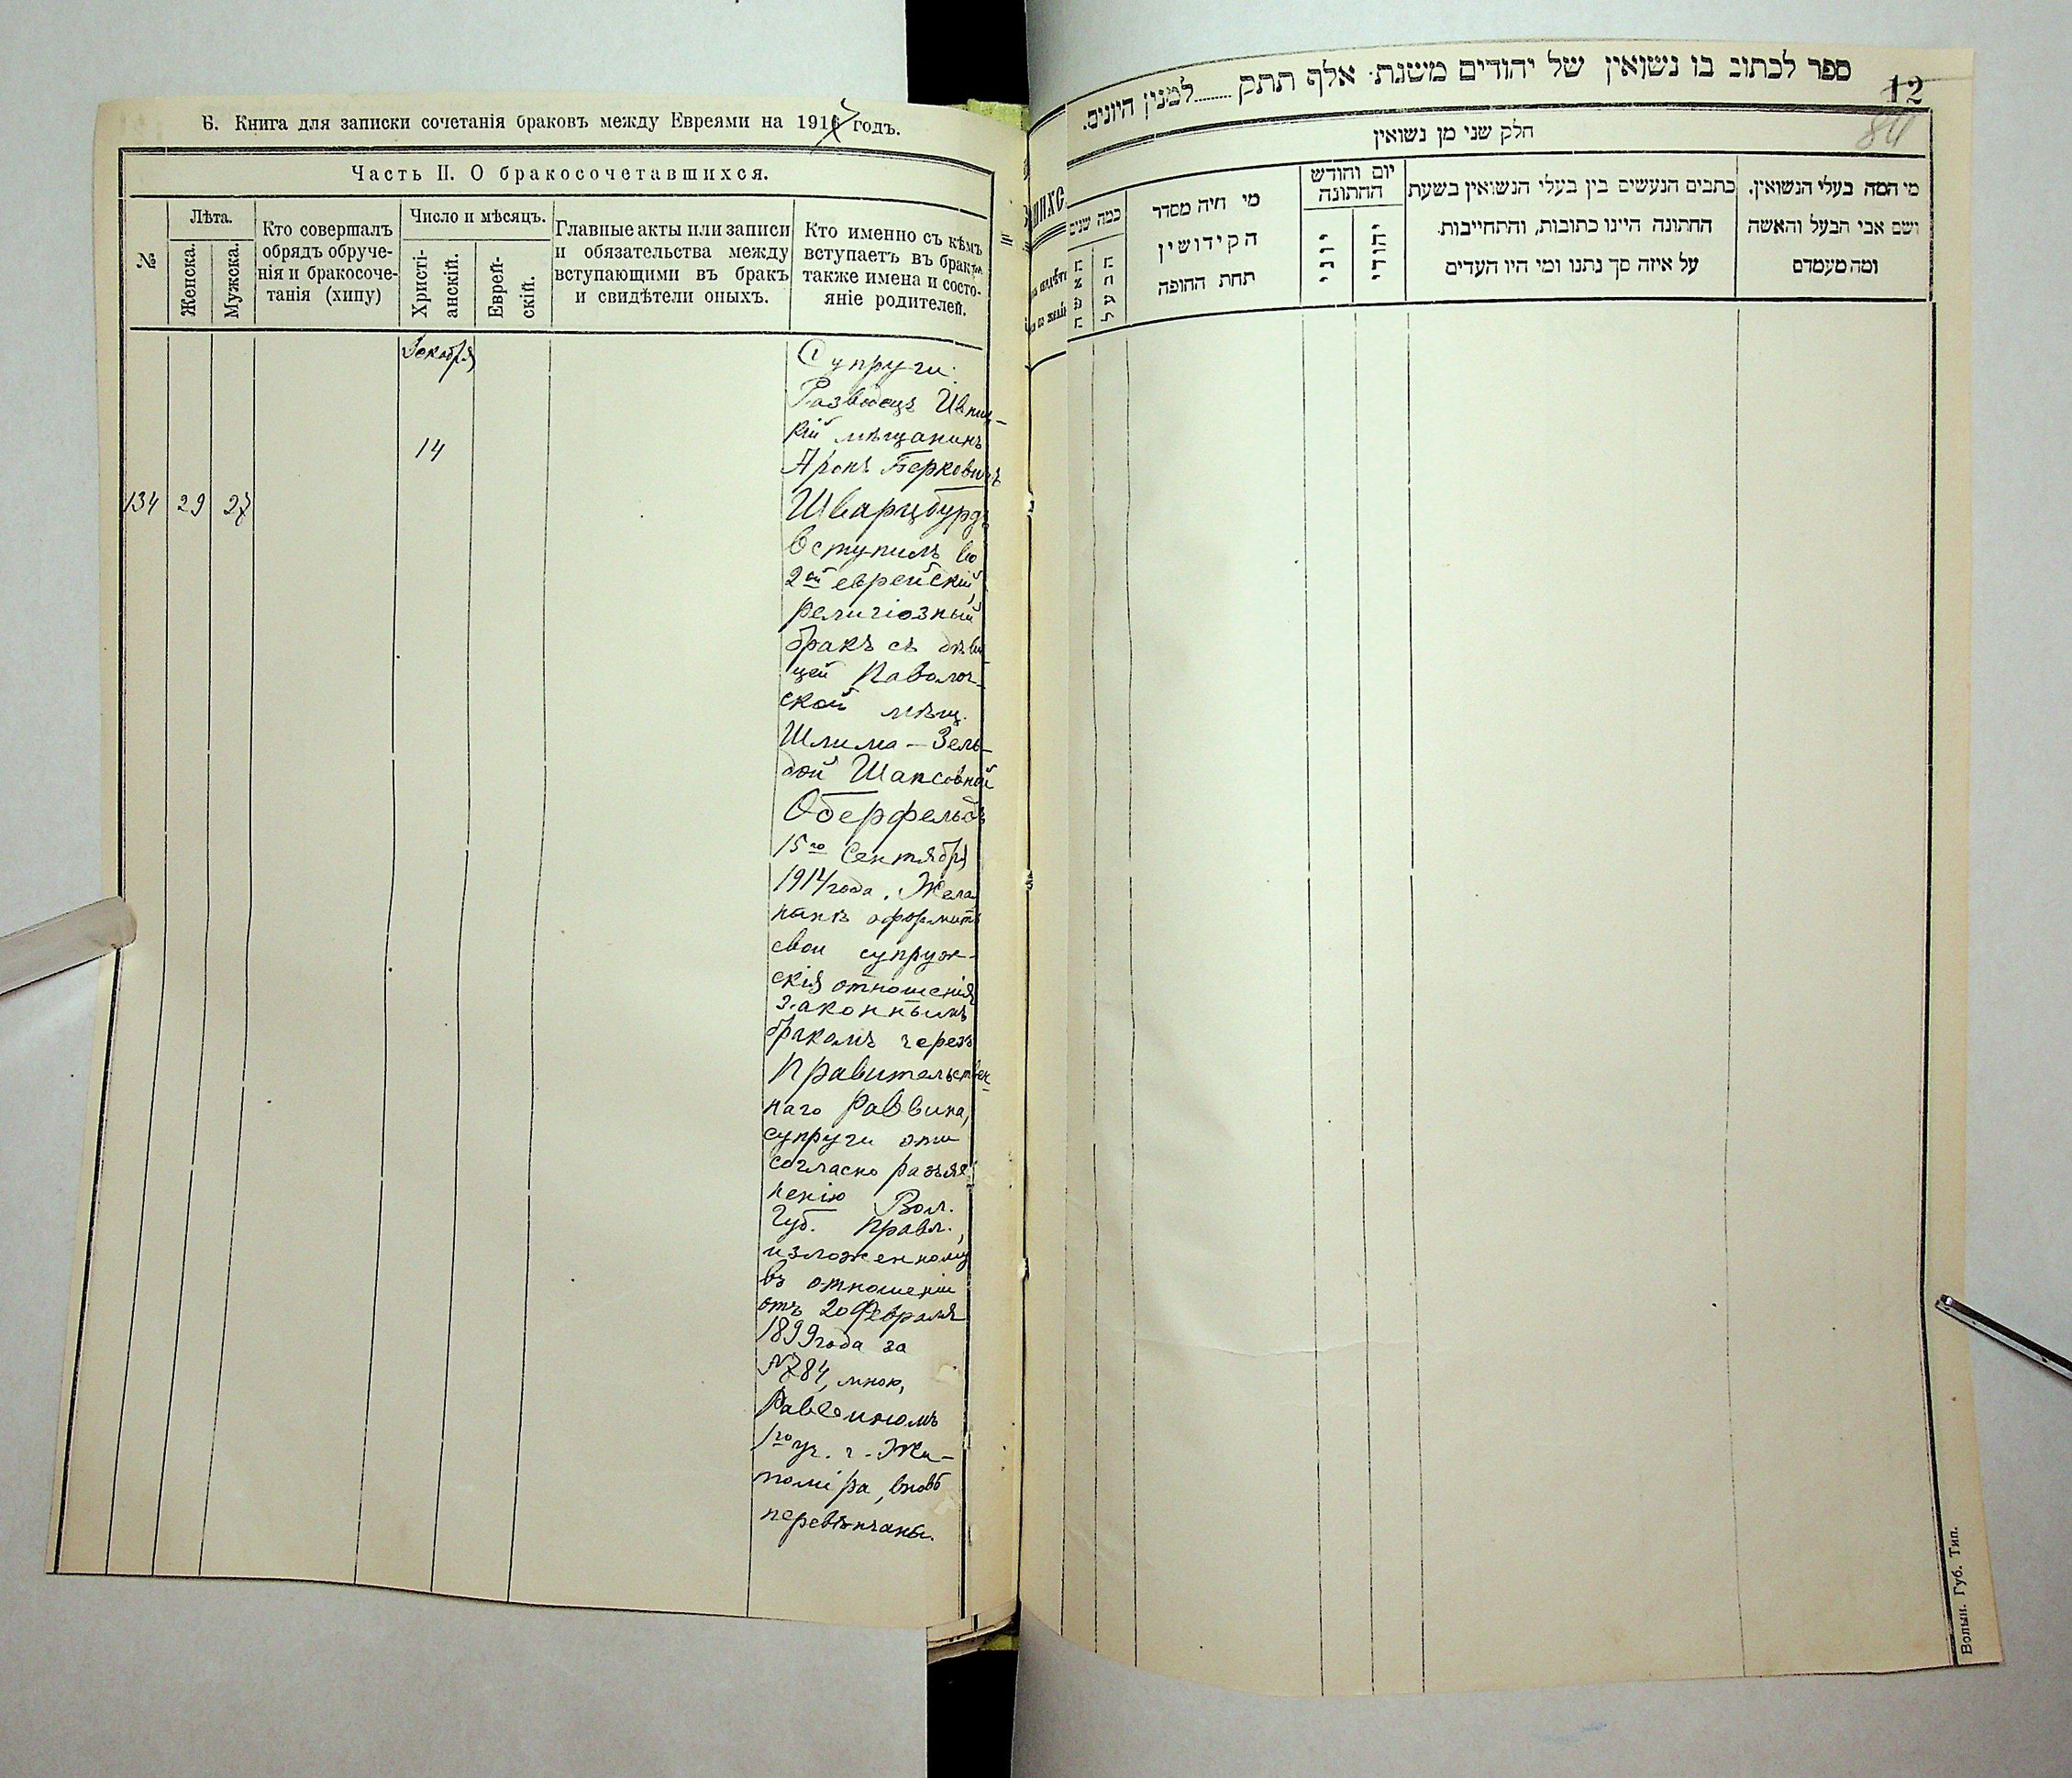 Б. Книга для записки сочетанія браковъ между Евреями на 1917 годъ.
Часть II. О бракосочетавшихся.
№
Лѣта.
Женска.
Мужска.
Кто совершалъ
обрядъ обруче-
нія и бракосоче-
танія (хипу)
Число и мѣсяцъ.
Христі-
анскій.
Еврей-
скій.
Главные акты или записи
и обязательства между
вступающими въ бракъ
и свидѣтели оныхъ.
Кто именно съ кѣмъ
вступаетъ въ бракъ,
также имена и состо-
яніе родителей.
134
29
27
Декабря
14
Супруги:
Разводецъ Ивниц-
кій мѣщанинъ
Аронъ Берковичъ
Шварцбурдъ
вступилъ во
2ой еврейскій,
религіозный
бракъ съ дѣви-
цей Паволоч-
ской мѣщ.
Шлима-Зель-
дой Шапсовной
Оберфельдъ
15го Сентября
1914 года. Желая
нынѣ оформить
свои супруж-
скія отношенія
законнымъ
бракомъ черезъ
Правительствен-
наго Раввина,
супруги эти
согласно разъяс-
ненію Вол.
Губ. Правл.,
изложенному
въ отношеніи
отъ 20 Февраля
1899 года за
№784, мною,
Раввиномъ
1го уч. г. Жи-
томіра, вновь
перевѣнчаны.
ספר לכתוב בו נשואין של יהודים משנת אלף תתק........למנין היונים.
12
84
חלק שני מן נשואין
מי המה בעלי הנשואין.
ושם אבי הבעל והאשה
ומה מעמדם
כתבים הנעשים בין בעלי הנשואין בשעת
החתונה היינו כתובות, והתחייבות
על איזה סך נתנו ומי היו העדים
יום וחודש
החתונה
יהודי
יוני
מי היה מסדר
הקידושין
תחת החופה
כמה שנים
הבעל
האשה
Волын. Губ. Тип.